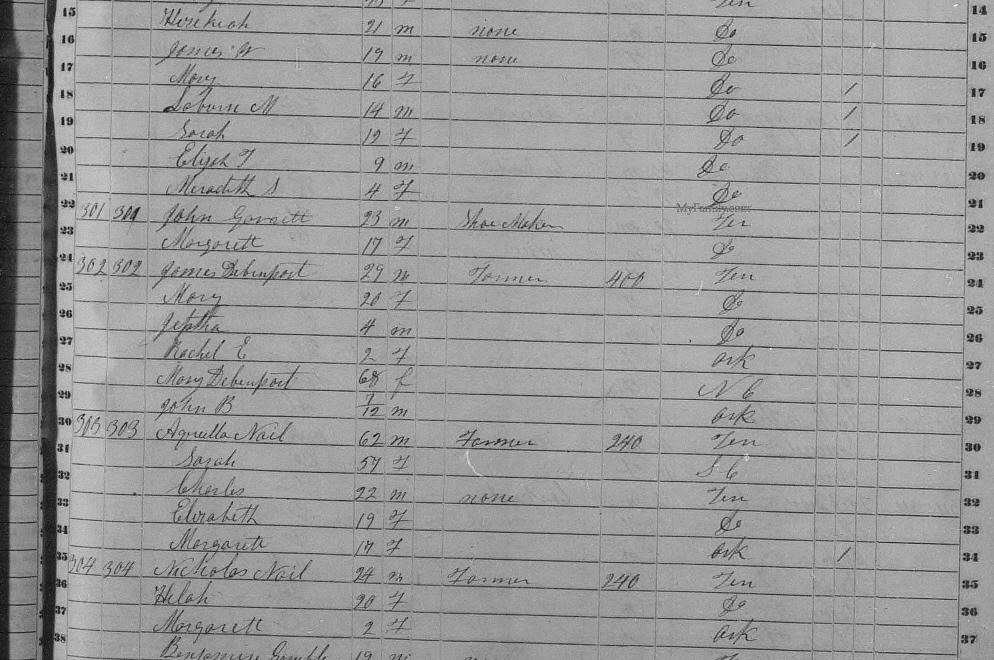 14
15 Hezekiah 21 m none Do 15
16 James W 19 m none Do 16
17 Mary 16 F Do / 17
18 M 14 m Do / 18
19 Sarah 12 F Do / 19
20 Elijah T 9 m Do 20
21 Meredith S 4 F Do 21
MyFamily.com
22 301 301 John Garrett 23 m Shoe Maker Ten 22
23 Margarett 17 F Do 23
24 302 302 James Debenport 29 m Farmer 400 Ten 24
25 Mary 20 F Do 25
26 Jeptha 4 m Do 26
27 Rachel E 2 F Ark 27
28 Mary Debenport 68 f N C 28
29 John B 12 m Ark 29
30 303 303 Aquilla Nail 62 m Farmer 240 Ten 30
31 Sarah 57 F S C 31
32 Charles 22 m none Ten 32
33 Elizabeth 19 F Do 33
34 Margarett 17 F Ark / 34
35 304 304 Nicholas Nail 24 m Farmer 240 Ten 35
36 20 F Do 36
37 Margarett 2 F Ark 37
38 Benjamin Gamble 19 m